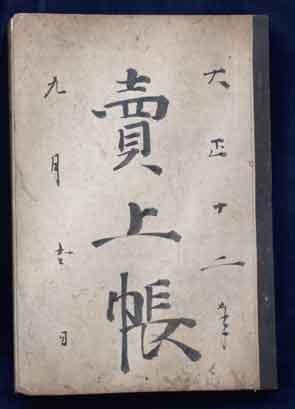 大正十二年
賣上帳
九月吉日